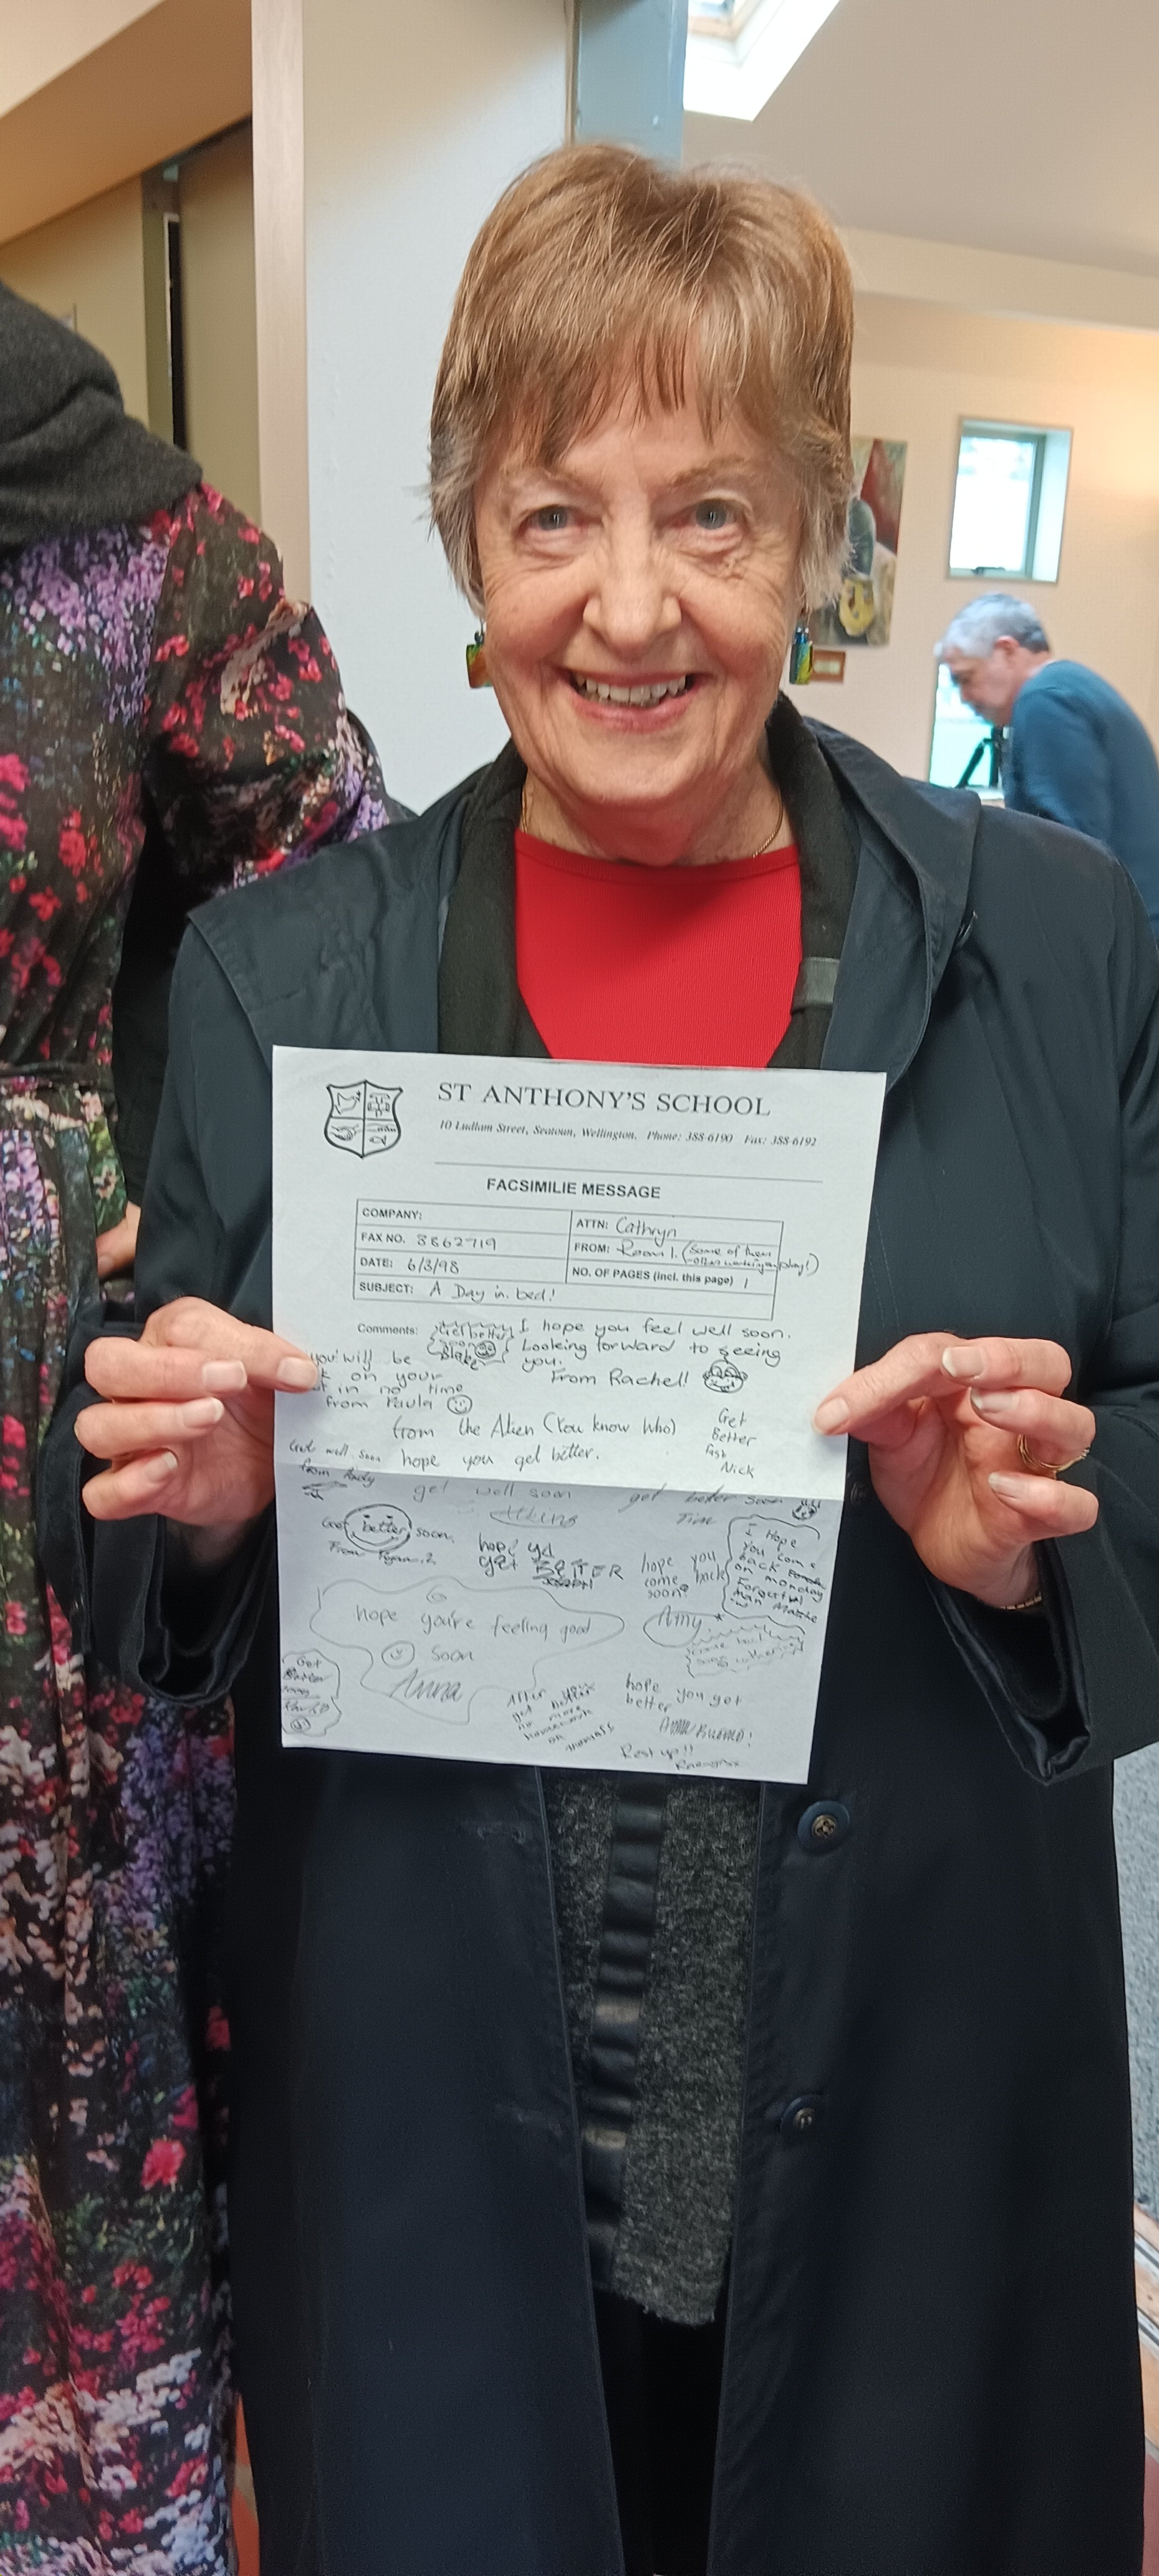 ST ANTHONY'S SCHOOL
10 Ludlam Street, Seatoun, Wellington. Phone: 388-6190 Fax: 388-6192
FACSIMILIE MESSAGE
COMPANY:
ATTN: Cathryn
FAX NO. 3862719
FROM: Room 1. (Some of them
DATE: 6/3/98
NO. OF PAGES (incl. this page) 1
SUBJECT: A Day in bed!
Comments:
Get better
soon
Blake
I hope you feel well soon.
Looking forward to seeing
you.
From Rachel!
you will be
on your
in no time
from Paula
from the Alien (You know Who)
hope you get better.
Get
Better
fast
Nick
Get well soon
from Andy
get well soon
get better soon
Tim
Get better soon.
From
hope yd
get BETTER
hope you
come back
soon?
Amy
I Hope
You come
back
on monday
from
hope you're feeling good
soon
Anna
Get
Better
soon
After you
get better
no more
homework
on
hope you get
better
Rest up!!